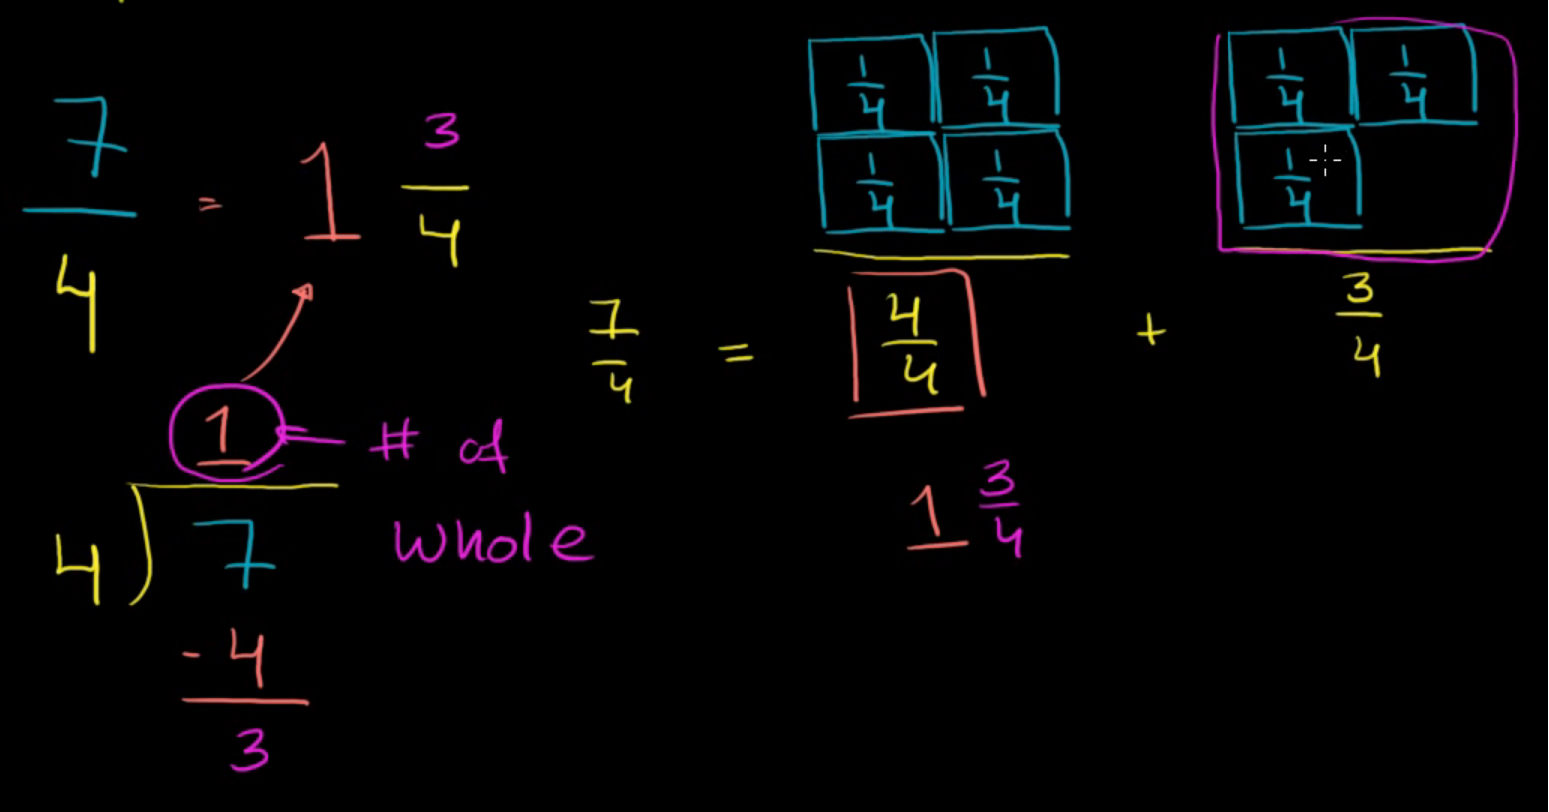 7/4 = 1 3/4
1 # of
whole
4)7
- 4
3
1/4 1/4
1/4 1/4
1/4 1/4
1/4
7/4 = 4/4 + 3/4
1 3/4